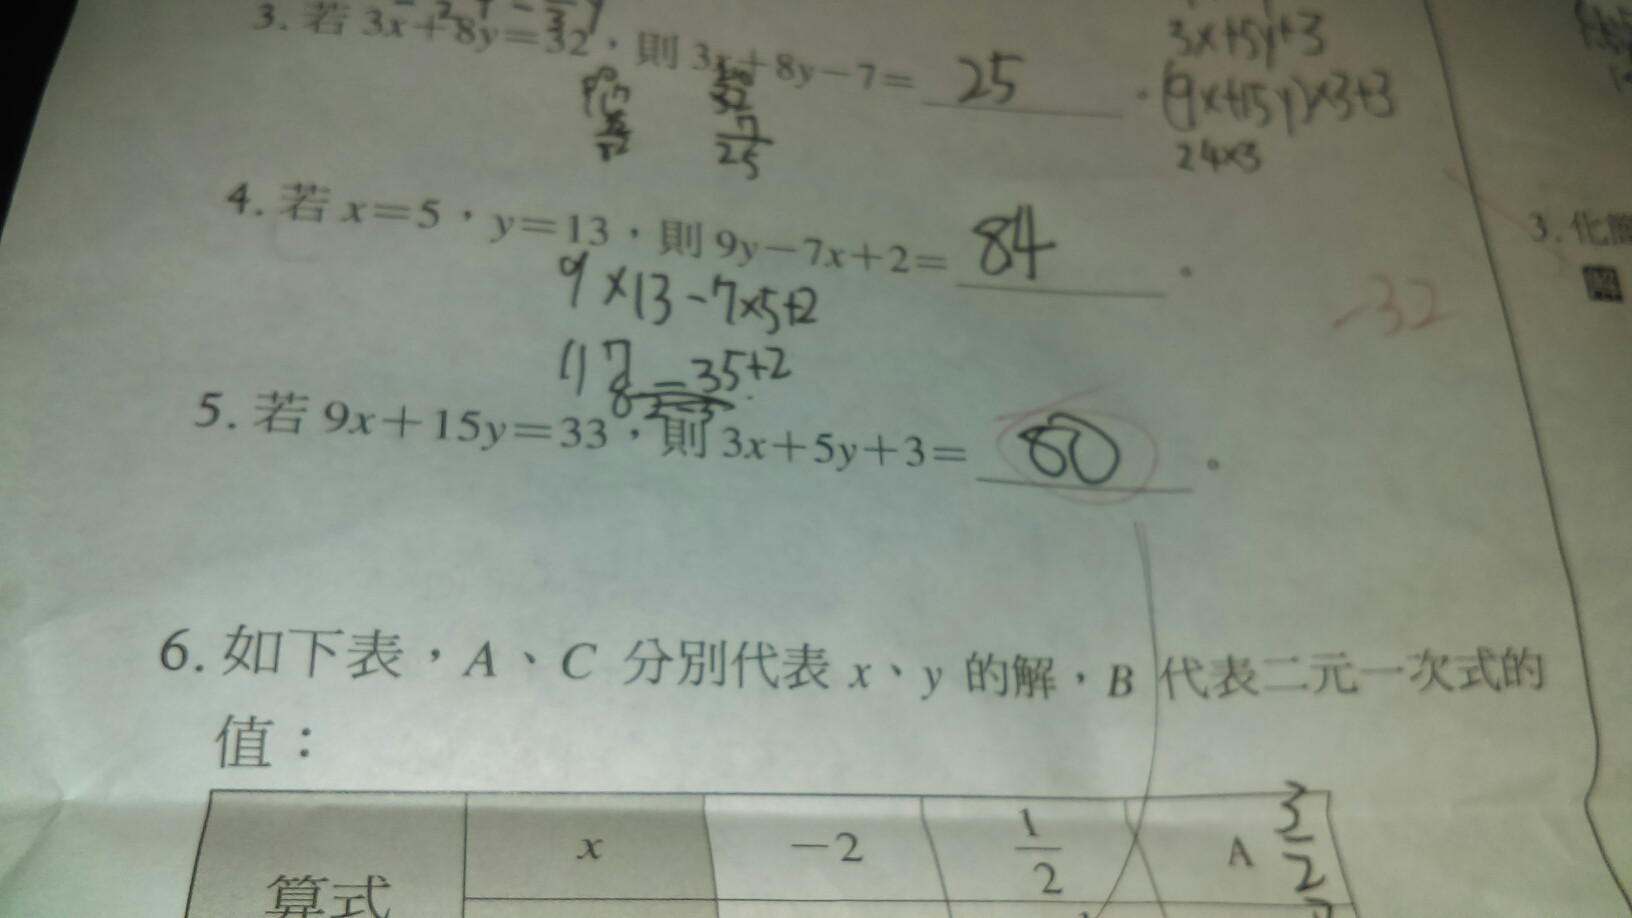 3. 若 3x+8y=32，則 3x+8y−7= 25 。
3x+5y+3
(9x+15y)×3+3
24×3
32
7
25
4. 若 x=5，y=13，則 9y−7x+2= 84 。
9×13−7×5+2
117−35+2
-32
5. 若 9x+15y=33，則 3x+5y+3= 80 。
6. 如下表，A、C 分別代表 x、y 的解，B 代表二元一次式的
值：
算式 x −2 1/2 A 3/2
3. 化簡